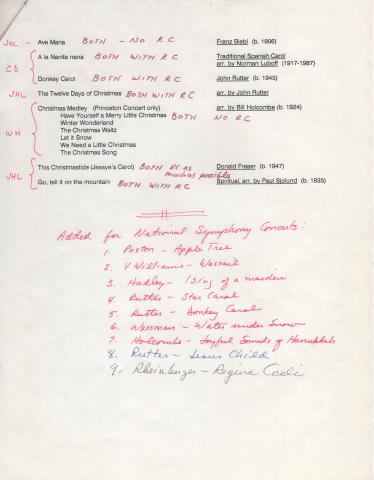 JHL - Ave Maria BOTH - NO RC Franz Biebl (b. 1906)
A la Nanita nana BOTH WITH RC Traditional Spanish Carol
arr. by Norman Luboff (1917-1987)
CD
Donkey Carol BOTH WITH RC John Rutter (b. 1945)
JHL The Twelve Days of Christmas BOTH WITH RC arr. by John Rutter
Christmas Medley (Princeton Concert only) arr. by Bill Holcombe (b. 1924)
Have Yourself a Merry Little Christmas BOTH NO RC
Winter Wonderland
The Christmas Waltz
WH
Let it Snow
We Need a Little Christmas
The Christmas Song
This Christmastide (Jessye's Carol) BOTH RC as much as possible Donald Fraser (b. 1947)
JHL
Go, tell it on the mountain BOTH WITH RC Spiritual, arr. by Paul Sjolund (b. 1935)
Added for National Symphony Concerts:
1. Poston - Apple Tree
2. V Williams - Wassail
3. Hadley - I Sing of a maiden
4. Rutter - Star Carol
5. Rutter - Donkey Carol
6. Wassman - Water under Snow
7. Holcombe - Joyful Sounds of Hanukkah
8. Rutter - Jesus Child
9. Rheinberger - Regina Coeli